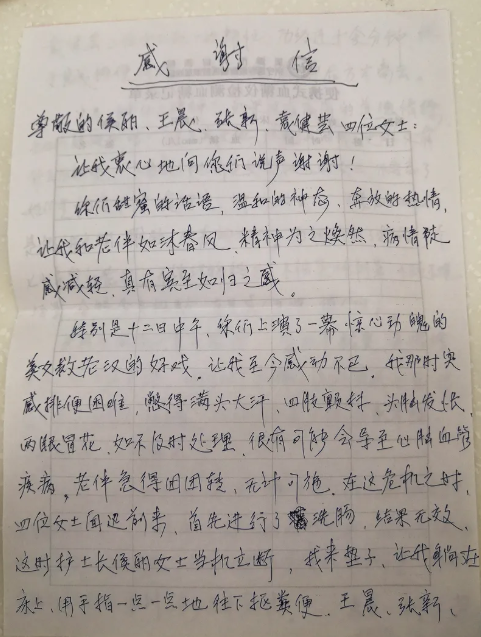 感谢信
尊敬的侯丽、王晨、张新、袁健芸四位女士:
让我衷心地向你们说声谢谢!
你们甜蜜的话语,温和的神态,奔放的热情,
让我和老伴如沐春风,精神为之焕然,病情顿
感减轻,真有宾至如归之感。
特别是十二日中午,你们上演了一幕惊心动魄的
美女救老汉的好戏,让我至今感动不已。我那时突
感排便困难,憋得满头大汗,四肢颤抖,头脑发胀,
两眼冒花,如不及时处理,很有可能会导至心脑血管
疾病。老伴急得团团转,无计可施。在这危机之时,
四位女士闻迅前来,首先进行了洗肠,结果无效,
这时护士长侯丽女士当机立断,找来垫子,让我躺在
床上,用手指一点一点地往下抠粪便。王晨、张新、